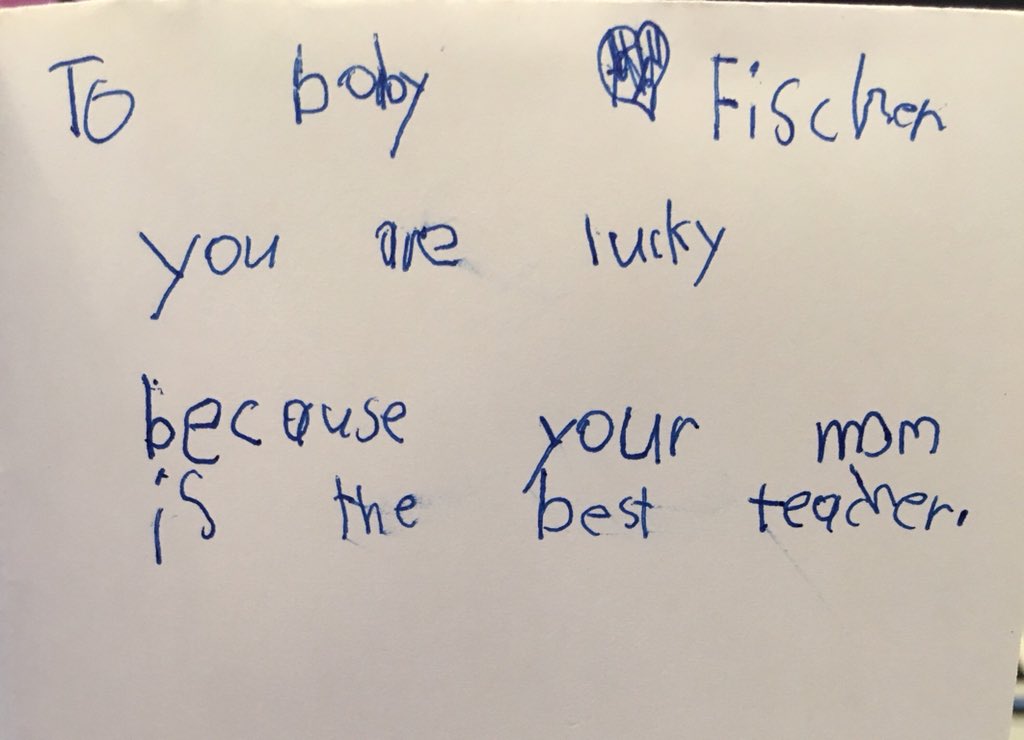 To baby Fischer
you are lucky
because your mom
is the best teacher.